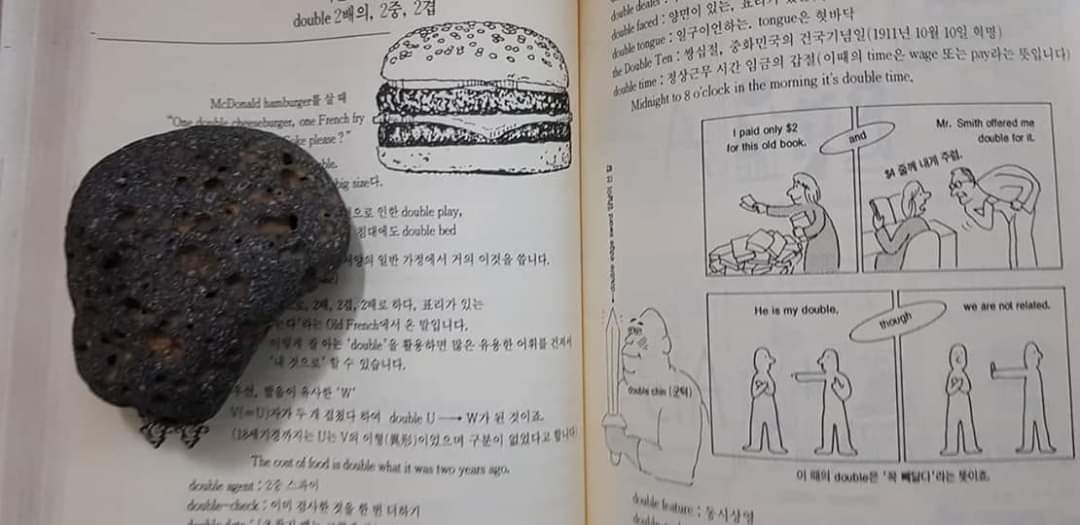 double 2배의, 2중, 2겹
McDonald hamburger를 살 때
"One double cheeseburger, one French fry
please ?"
big size다.
으로 인한 double play,
침대에도 double bed
일반 가정에서 거의 이것을 씁니다.
2배, 2겹, 2매로 하다, 표리가 있는
라는 Old French에서 온 말입니다.
잘 아는 'double'을 활용하면 많은 유용한 어휘를
'내 것으로' 할 수 있습니다.
우선, 발음이 유사한 'W'
V(=U)자가 두 개 겹쳤다 하여 double U → W가 된 것이죠.
(18세기경까지는 U는 V의 이형(異形)이었으며 구분이 없었다고 합니다)
The cost of food is double what it was two years ago.
double agent : 2중 스파이
double-check : 이미 검사한 것을 한 번 더하기
double dealer :
double faced : 양면이 있는,
double tongue : 일구이언하는, tongue은 혓바닥
the Double Ten : 쌍십절, 중화민국의 건국기념일(1911년 10월 10일 혁명)
double time : 정상근무 시간 임금의 갑절(이때의 time은 wage 또는 pay라는 뜻입니다)
Midnight to 8 o'clock in the morning it's double time.
I paid only $2
for this old book.
and
Mr. Smith offered me
double for it.
$4 줄께 내게 주렴.
double edge sword
double chin (군턱)
He is my double,
though
we are not related.
이 때의 double은 '꼭 빼닮다'라는 뜻이죠.
double feature : 동시상영